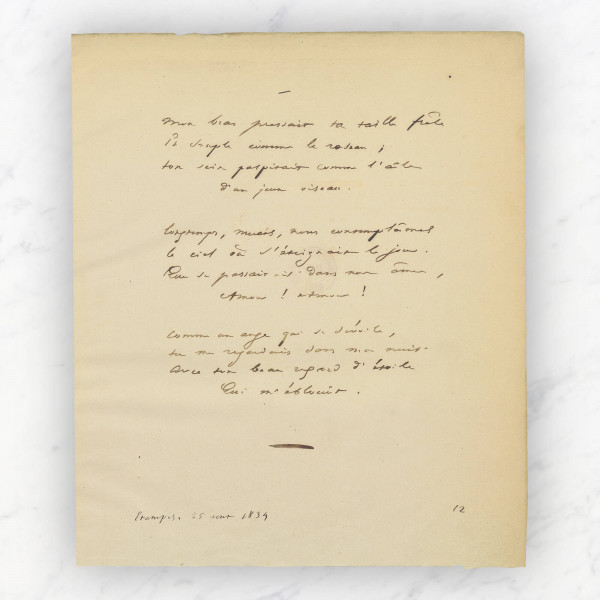 —
Mon bras pressait ta taille frêle
Et souple comme le roseau ;
ton sein palpitait comme l'aile
d'un jeune oiseau.
longtemps, muets, nous contemplâmes
le ciel où s'éteignait le jour.
Que se passait-il dans nos âmes,
Amour ! amour !
comme un ange qui se dévoile,
tu me regardais dans ma nuit
avec ton beau regard d'étoile
Qui m'éblouit.
25 août 1839
12